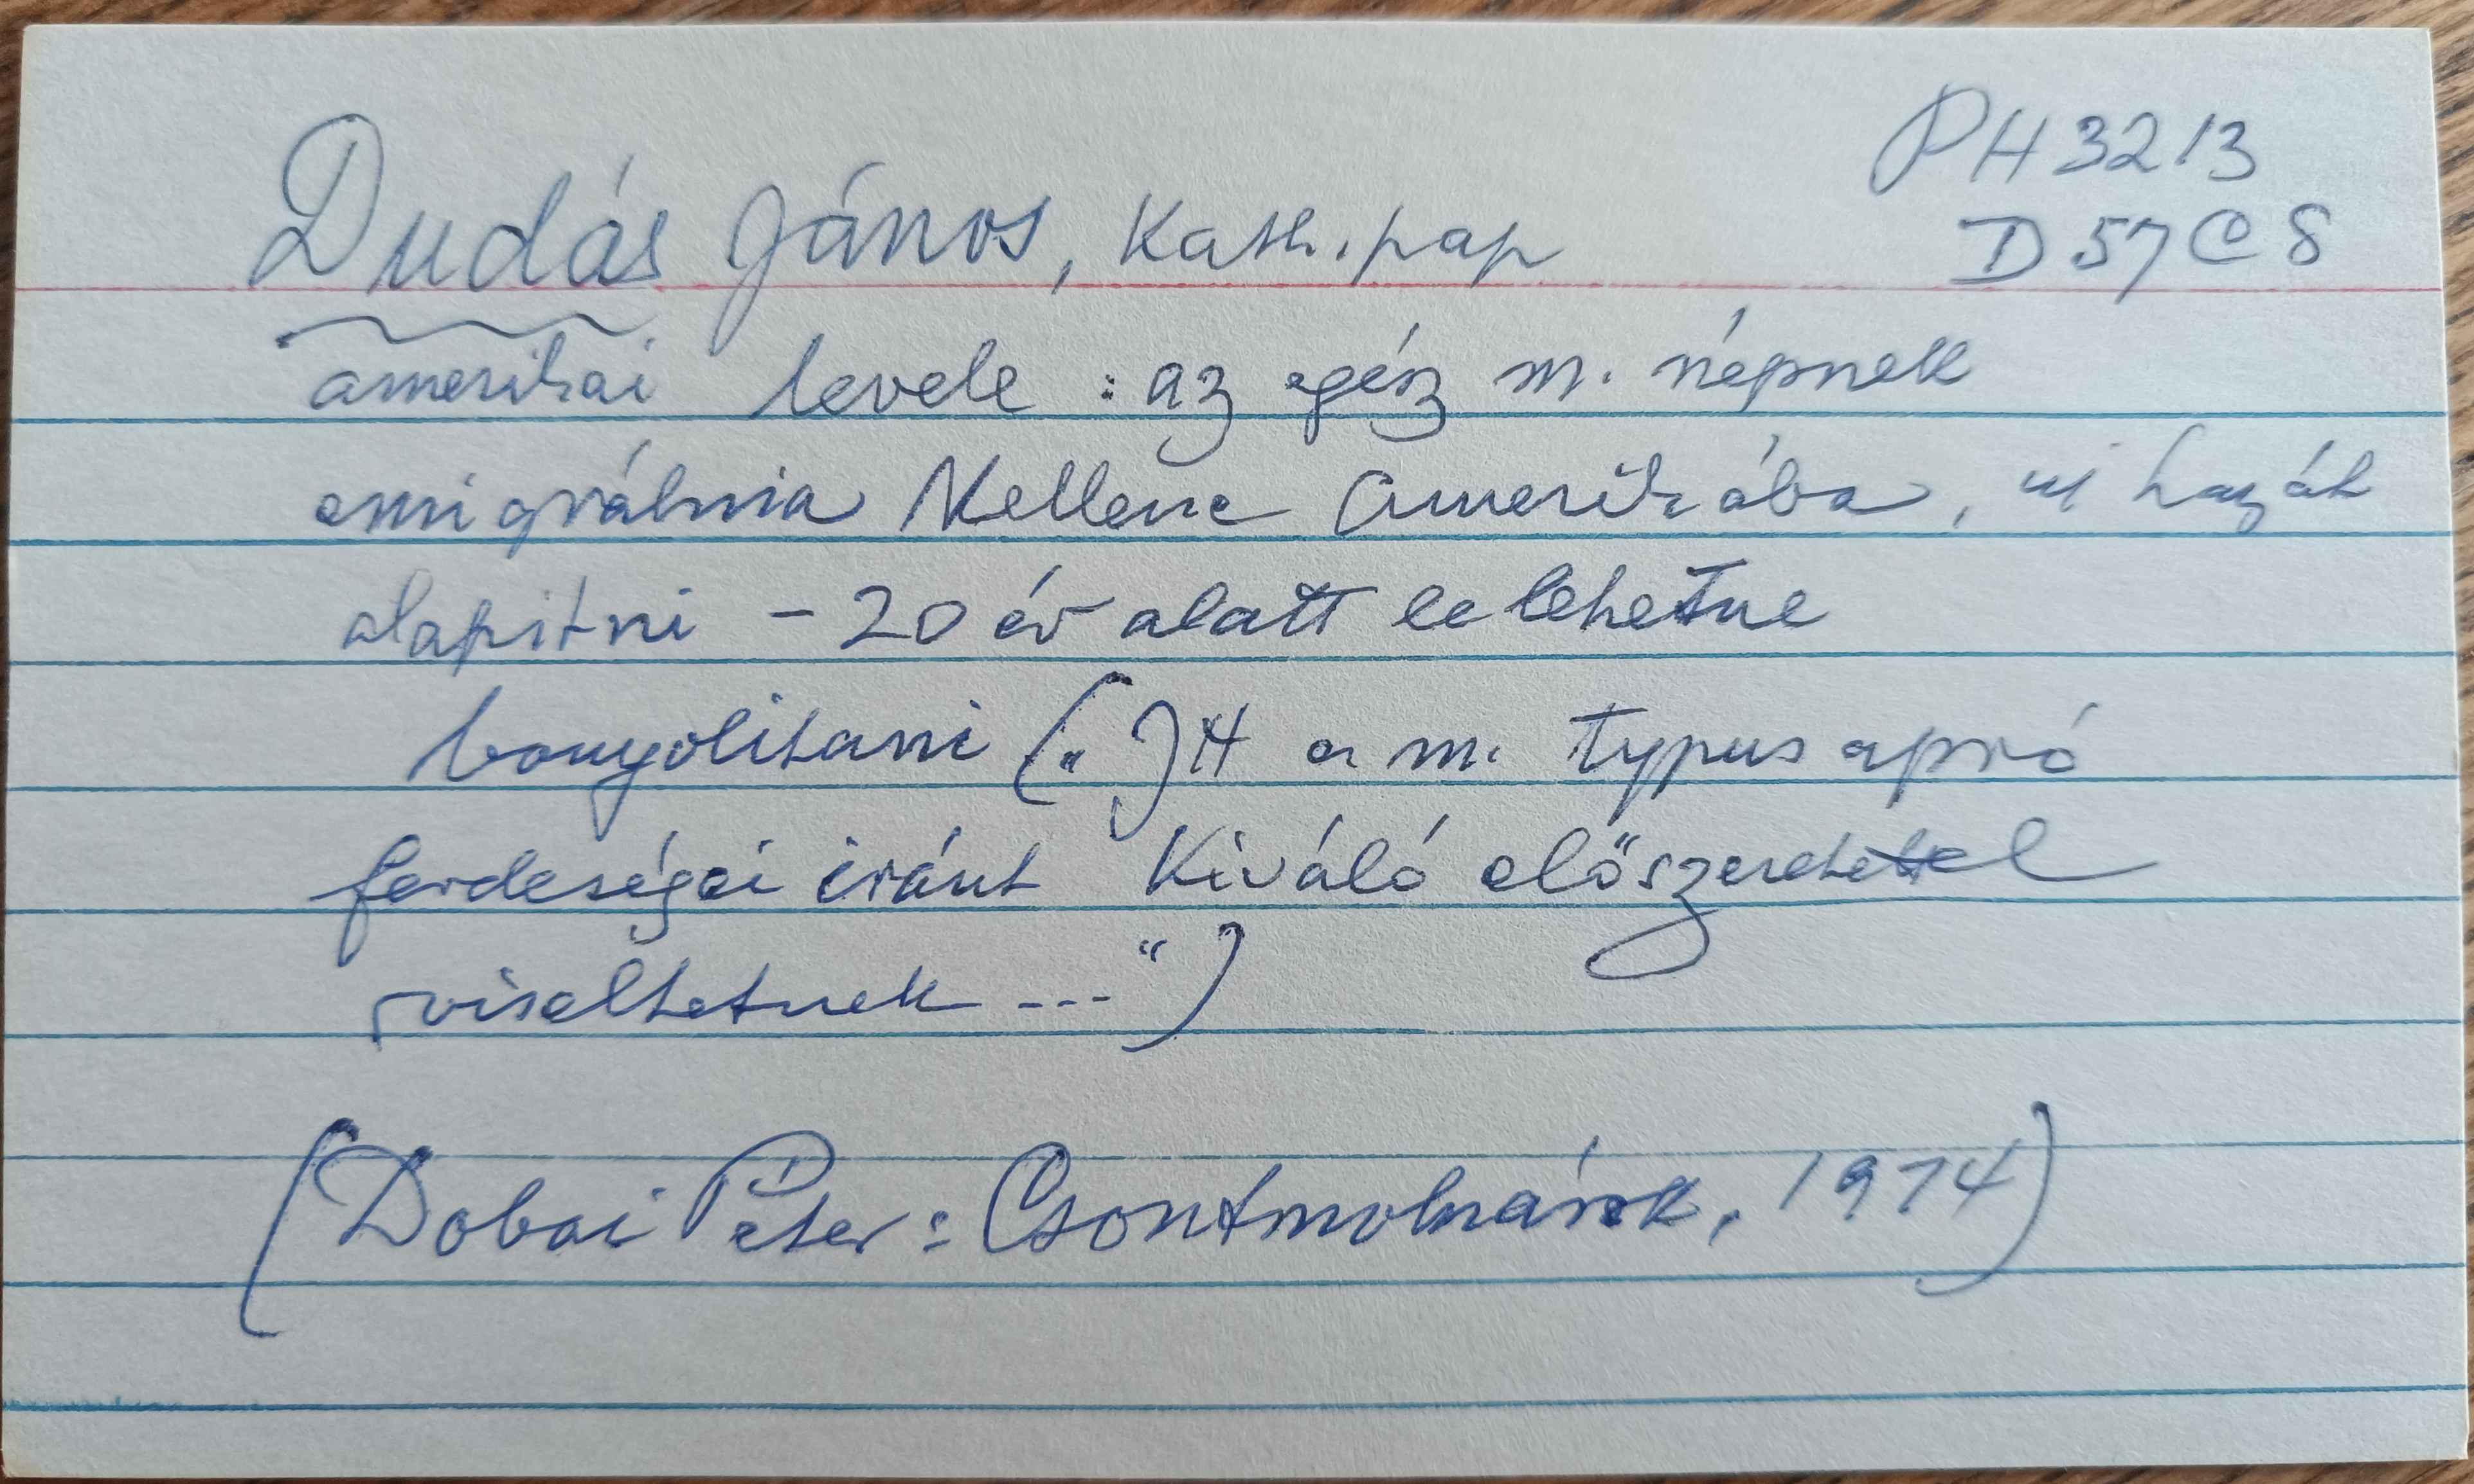 PH 3213
D57C8
Dudás János, kath. pap
amerikai levele : az egész m. népnek
emigrálnia kellene Amerikába, uj hazát
alapitni – 20 év alatt le lehetne
bonyolitani („Itt a m. typus apró
ferdeségei iránt kiváló előszeretettel
viseltetnek ---")
(Dobai Péter: Csontmolnárok, 1974)